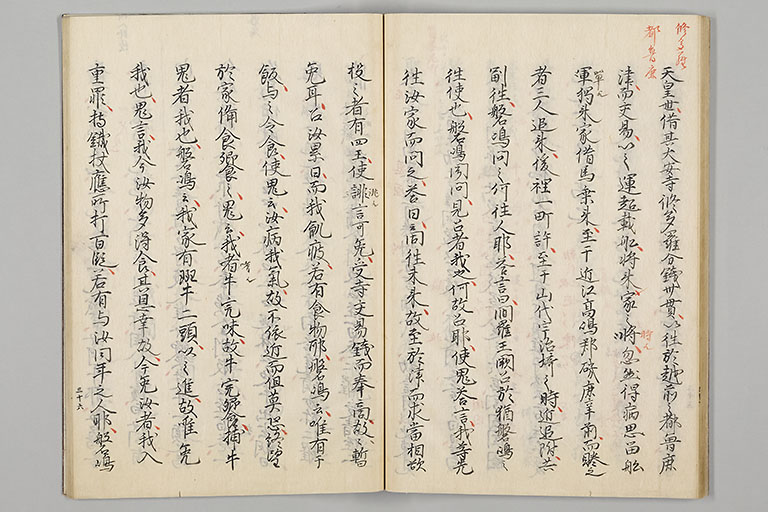 天皇世借其大安寺修多羅分錢卅貫以往於越前之都魯鹿
津而交易以之運超載船將来家之時忽然得病思留船
單獨来家借馬乗来至于近江高嶋郡磯鹿辛前而睠之
者三人追来後程一町許至于山代宇治椅之時近追附共
副往磐嶋問之何往人耶答言曰閻羅王闕召於楢磐嶋之
往使也磐嶋聞問見召者我也何故召耶使鬼答言我等先
往汝家而問之答曰商往未来故至於津而求當相欲
投之者有四王使誂言可免受寺交易錢而奉商故之暫
免耳召汝累日而我飢疲若有食物耶磐嶋云唯有干
飯与之令食使鬼云汝病我氣故不依近而但莫恐終望
於家備食饗之鬼云我者牛宍味故牛宍饗食捕牛
鬼者我也磐嶋云我家有斑牛二頭以之進故唯免
我也鬼言我今汝物多得食其恩幸故今免汝者我入
重罪持鐵杖應所打百段若有与汝同年之人耶磐嶋
三十六